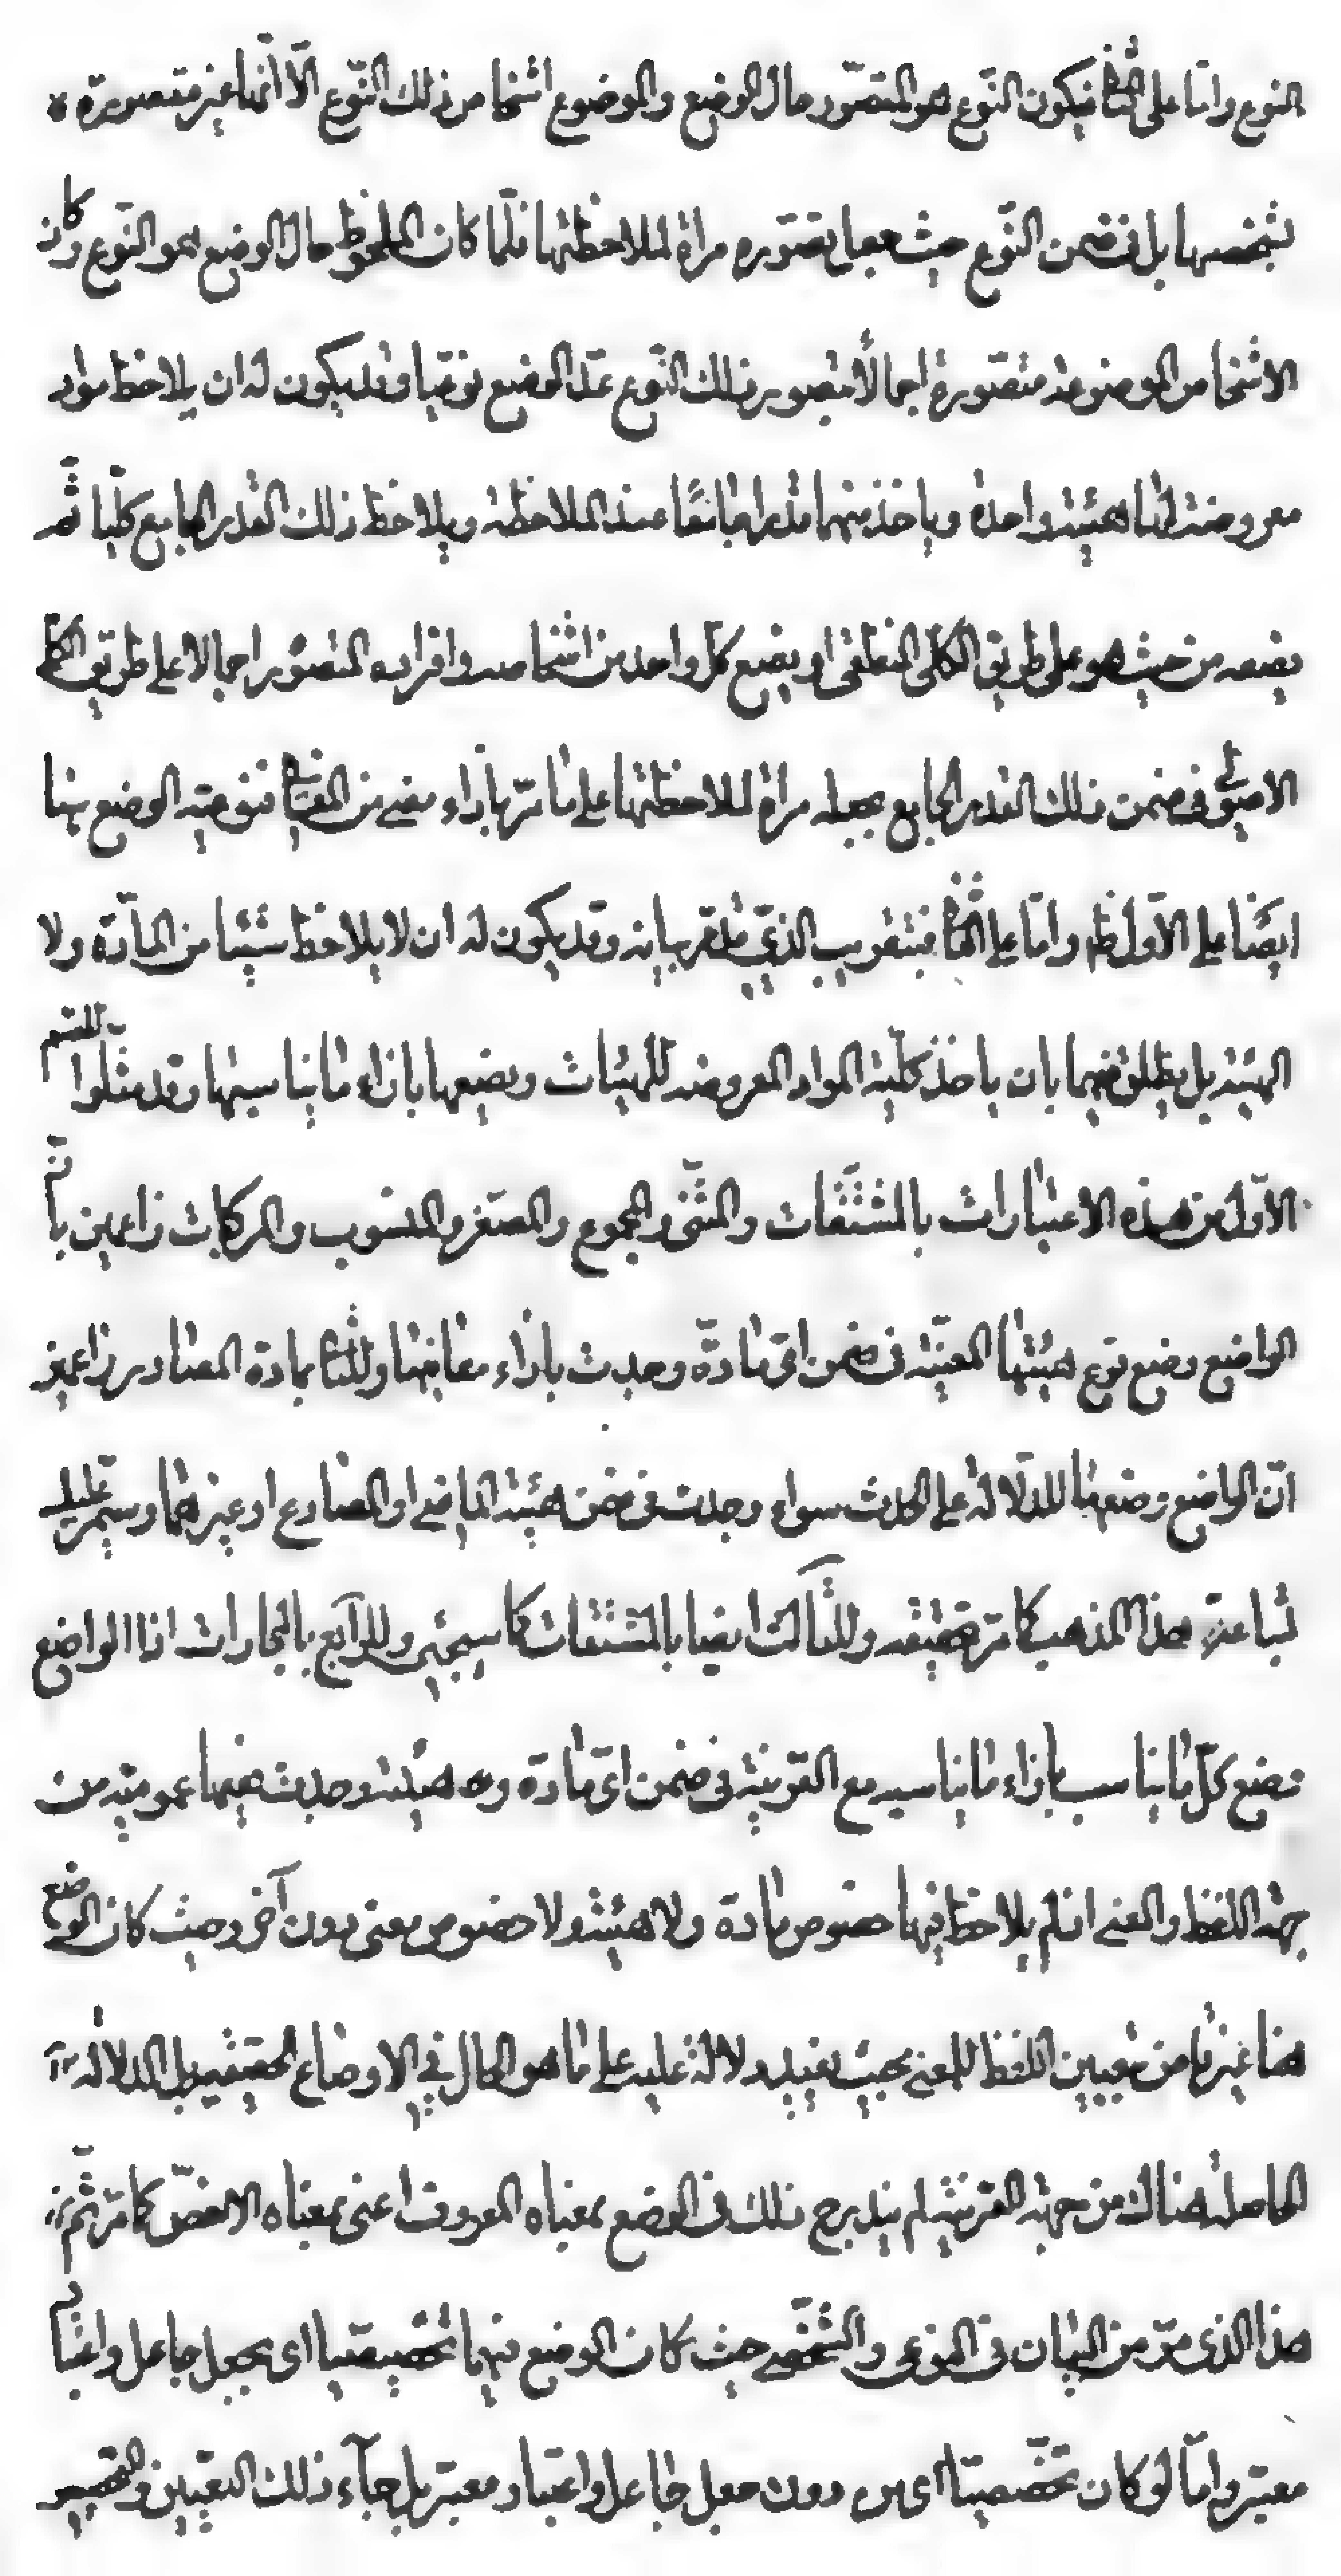 النوع واما على الثا فيكون النوع هو المتصور حال الوضع والموضوع اشخاص ذلك النوع الا انها غير متصورة
بشخصها بل فى ضمن النوع حيث جعل تصوره مراة لملاحظتها فلما كان الملحوظ حال الوضع هو النوع وكان
الاشخاص الموضوعة متصورة اجمالا بتصور ذلك النوع عد الوضع نوعيا وقد يكون له ان يلاحظ مواد
معروضة لها هيئة واحدة وياخذ منها قدرا جامعا عند الملاحظة ويلاحظ ذلك القدر الجامع كليا ثم
يضعه من حيث هو على طريق الكلى المنطقى او يضع كل واحد من اشخاصه وافراده المتصور اجمالا على طريق الكلى
الاصولى فى ضمن ذلك القدر الجامع بجعله مراة لملاحظتها على ما مر بازاء معنى من المعانى فنوعية الوضع هنا
ايضا على الاول ظ واما على الثا فبتقريب الذى قد مر بيانه وقد يكون له ان لا يلاحظ شيئا من المادة ولا
الهيئة بل يطلق فيهما بان ياخذ كلية المواد المعروضة للهيئات ويضعها بازاء ما يناسبها وقد مثلوا للقسم
الاول من هذه الاعتبارات بالمشتقات والمثنى والمجموع والمصغر والمنسوب والمركبات زاعمين بان
الواضع وضع نوع هيئتها المعينة فى ضمن اى مادة وجدت بازاء معانيها وللثا بمادة المصادر زاعمين
ان الواضع وضعها للدلالة على الحدث سواء وجدت فى ضمن هيئة الماضى او المضارع او غيرهما وستمر عليك
شناعة هذا المذهب كما مر تحقيقه وللثالث ايضا بالمشتقات كما سيجئ وللرابع بالمجازات اذ الواضع
وضع كل ما يناسب بازاء ما يناسبه مع القرينة فى ضمن اى مادة وهيئة وجدت ففيهما عمومية من
جهة اللفظ والمعنى اذ لم يلاحظ فيها خصوص مادة ولا هيئة ولا خصوص معنى دون آخر وحيث كان الوضع
هنا غير ما من تعيين اللفظ للمعنى بحيث يفيد دلالة عليه على ما هو الحال فى الاوضاع الحقيقية بل الدلالة
الحاصلة هناك من جهة القرينة لم يندرج ذلك فى الوضع بمعناه المعروف اعنى بمعناه الاخص كما مر ثم
هذا الذى مر من البيان فى النوعى والشخصى حيث كان الوضع فيهما تخصيصيا اى بجعل جاعل واعتبار
معتبر واما لو كان تخصصيا اى من دون جعل جاعل واعتبار معتبر بل جآء ذلك التعيين والتخصيص